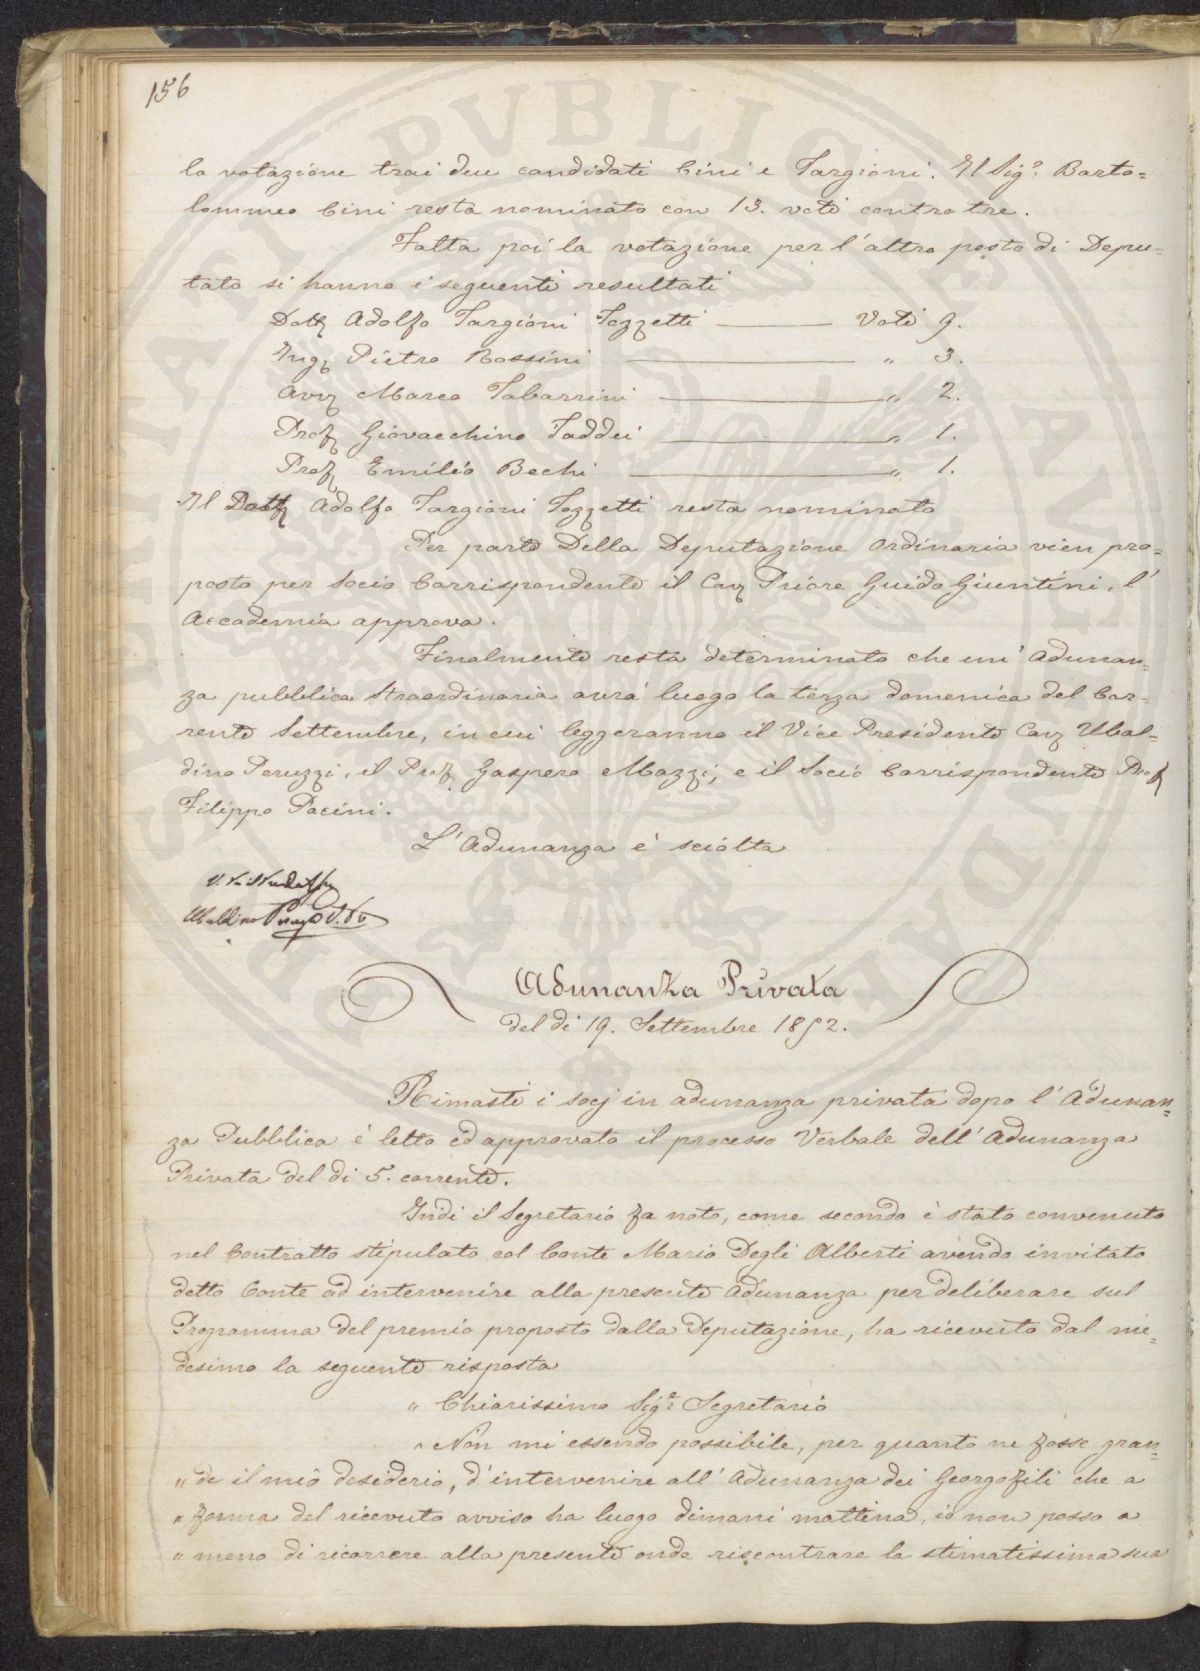 156
la votazione trai due candidati Cini e Targioni. Il Sig.e Barto=
lommeo Cini resta nominato con 13. voti contro tre.
Fatta poi la votazione per l'altro posto di Depu=
tato si hanno i seguenti resultati
Dott Adolfo Targioni Tozzetti ——— Voti 9.
Ing Pietro Rossini ——— " 3.
Avv Marco Tabarrini ——— " 2.
Prof Giovacchino Taddei ——— " 1.
Prof Emilio Bechi ——— " 1.
Il Dott Adolfo Targioni Tozzetti resta nominato
Per parte Della Deputazione Ordinaria vien pro=
posto per Socio Corrispondente il Cav Priore Guido Giuntini, l'
Accademia approva.
Finalmente resta determinato che un' Adunan=
za pubblica straordinaria avrà luogo la terza domenica del Cor=
rente Settembre, in cui leggeranno il Vice Presidente Cav Ubal=
dino Peruzzi, il Prof Gaspero Mazzi, e il Socio Corrispondente Prof
Filippo Pacini.
L'Adunanza è sciolta
Ubaldino Peruzzi
Adunanza Privata
del dì 19. Settembre 1852.
Rimasti i Socj in adunanza privata dopo l'Adunan=
za Pubblica è letto ed approvato il processo Verbale dell'Adunanza
Privata del dì 5. corrente.
Indi il Segretario fa noto, come secondo è stato convenuto
nel Contratto stipulato col Conte Mario Degli Alberti avendo invitato
detto Conte ad intervenire alla presente Adunanza per deliberare sul
Programma del premio proposto dalla Deputazione, ha ricevuto dal me=
desimo la seguente risposta
" Chiarissimo Sig.e Segretario
" Non mi essendo possibile, per quanto ne fosse gran=
" de il mio desiderio, d'intervenire all'Adunanza dei Georgofili che a
" forma del ricevuto avviso ha luogo dimani mattina, io non posso a
" meno di ricorrere alla presente onde riscontrare la stimatissima sua
PVBLICAE
PROSPERITATI AVGENDAE